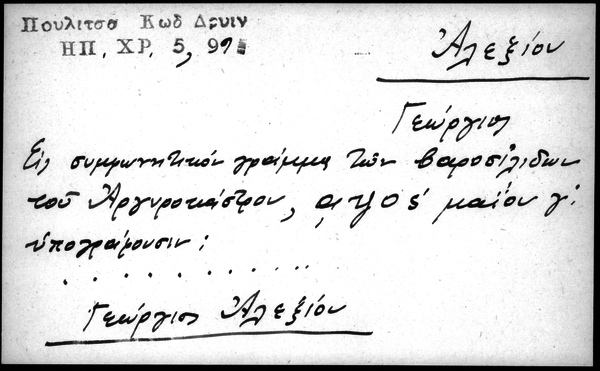 Πουλιτσα Κωδ Δρυιν
ΗΠ. ΧΡ. 5, 97
Ἀλεξίου
Γεώργιος
Εἰς συμφωνητικόν γράμμα τῶν βαροσιλιδων
τοῦ Ἀργυροκάστρου, αψος μαΐου γ΄
ὑπογράφουσιν:
. . . . . . . . . . .
Γεώργιος Ἀλεξίου